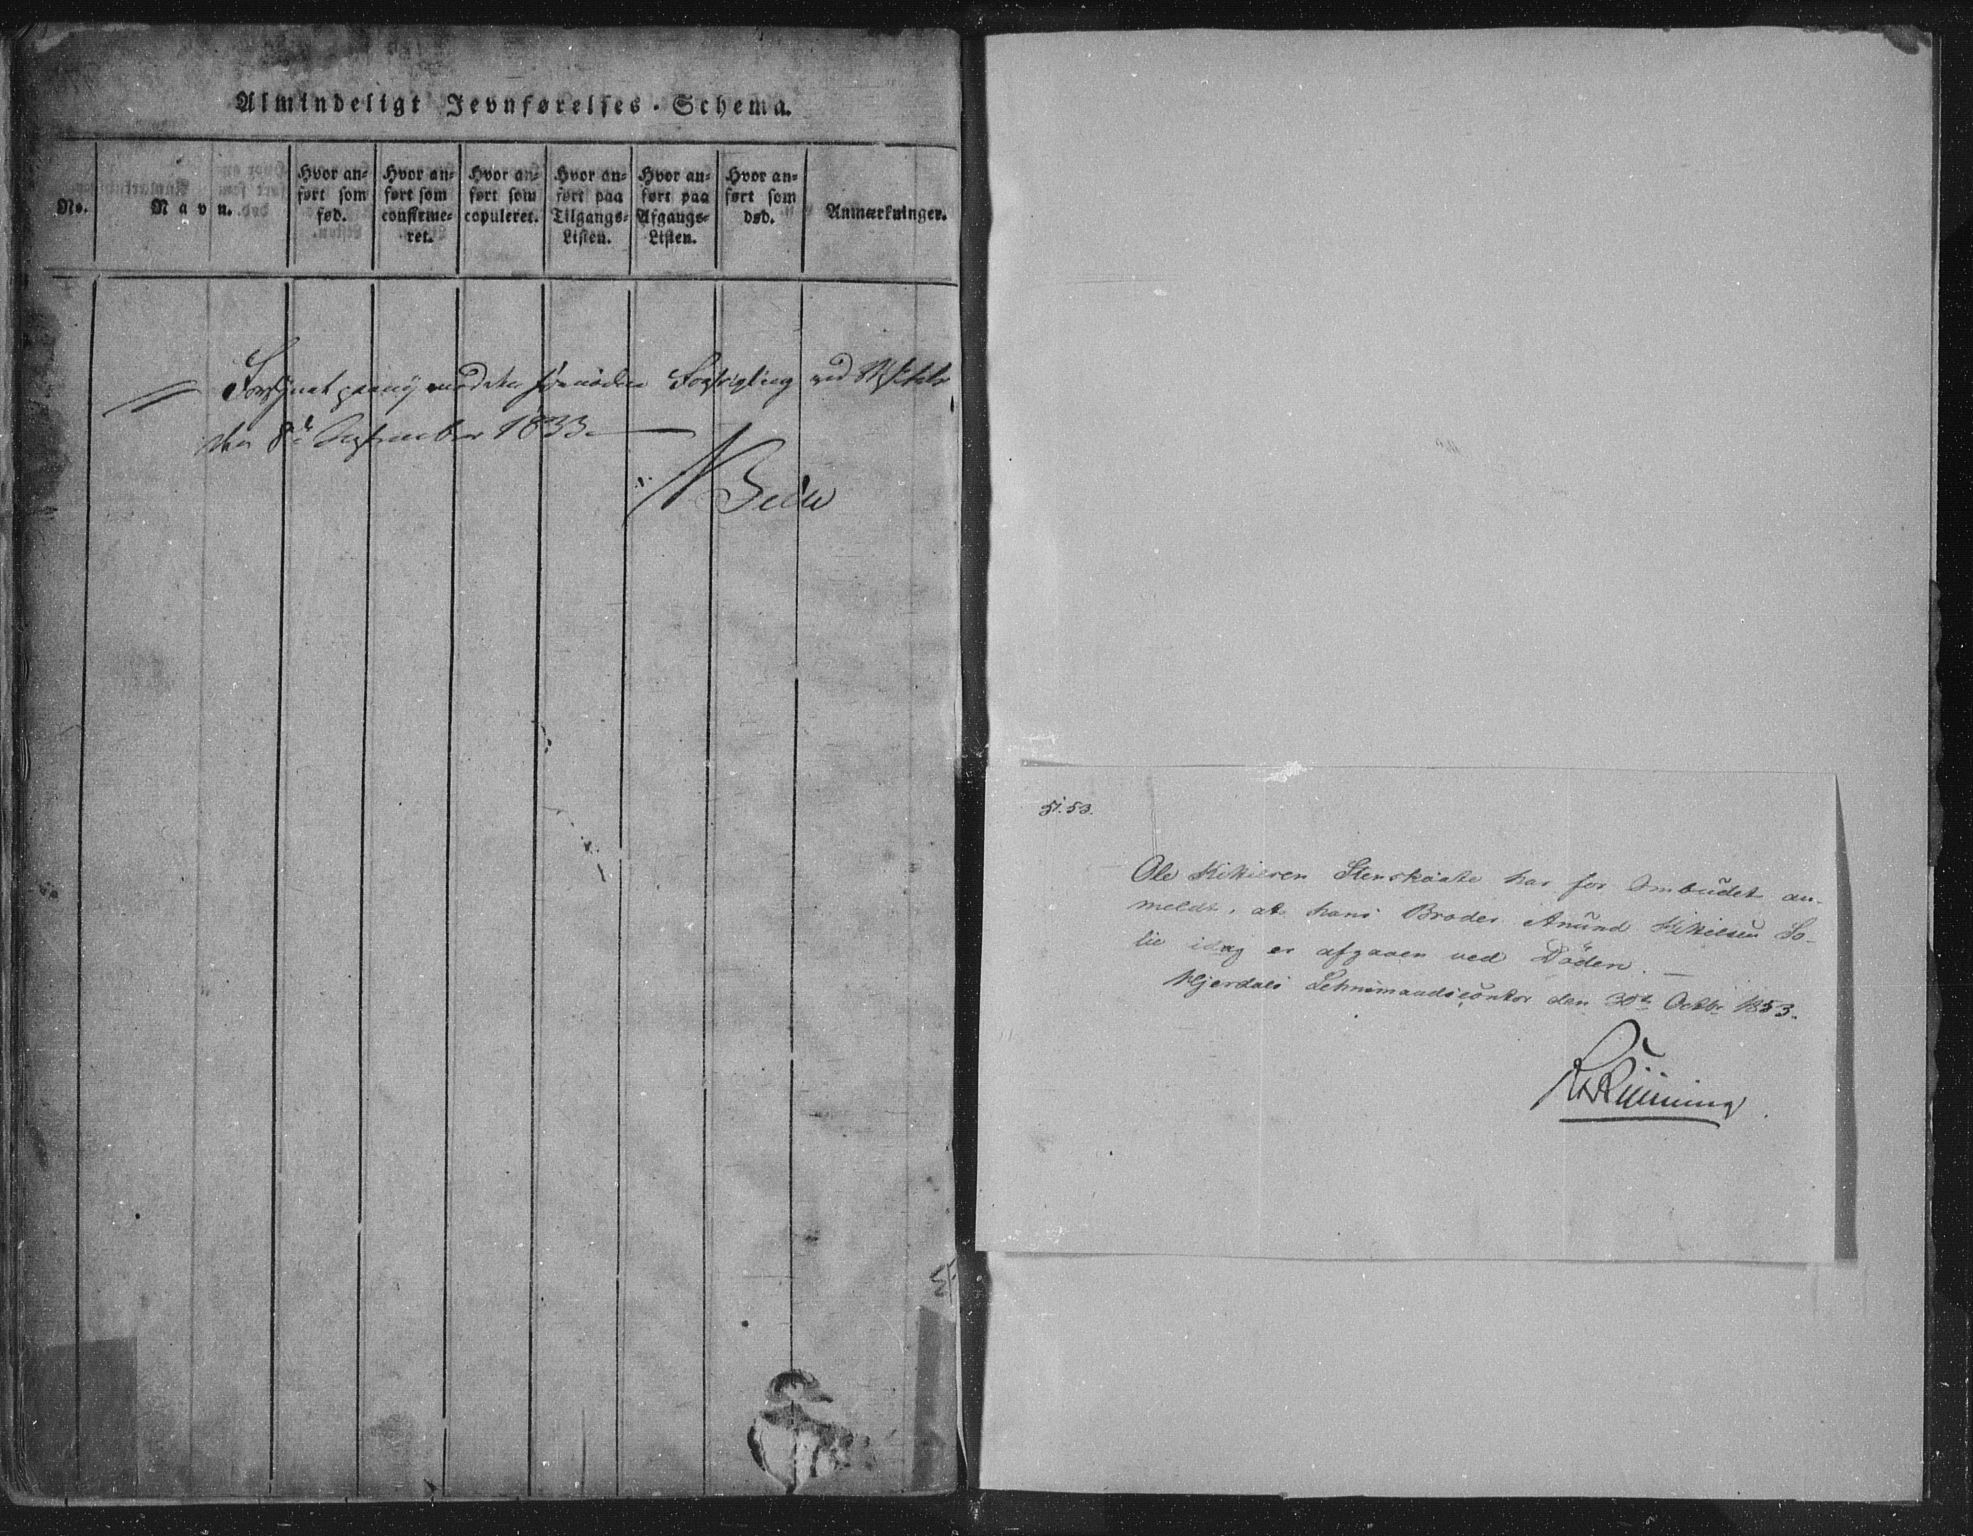 Almindeligt Jevnførelses-Schema.
No.
Navn.
Hvor an-
ført som
fød.
Hvor an-
ført som
confirme-
ret.
Hvor an-
ført som
copuleret.
Hvor an-
ført paa
Tilgangs-
Listen.
Hvor an-
ført paa
Afgangs-
Listen.
Hvor an-
ført som
død.
Anmærkninger.
Forsynet paany med den fornødne Forsegling ved
den 8de September 1833.
51.53.
Ole Kittilsen Stenskaate har for Ombudet an-
meldt, at hans Broder Anund Kittilsen So-
lie idag er afgaaen ved Döden. —
Hjerdals Lehnsmandscontor den 30te Octbr 1853.